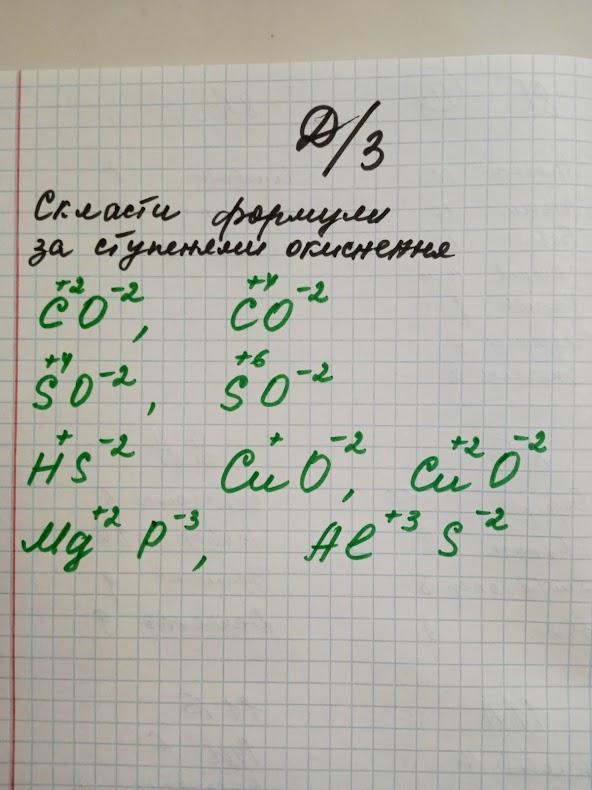 Д/З
Скласти формули
за ступенями окиснення
C⁺²O⁻², C⁺⁴O⁻²
S⁺⁴O⁻², S⁺⁶O⁻²
H⁺S⁻² Cu⁺O⁻², Cu⁺²O⁻²
Mg⁺²P⁻³, Al⁺³S⁻²